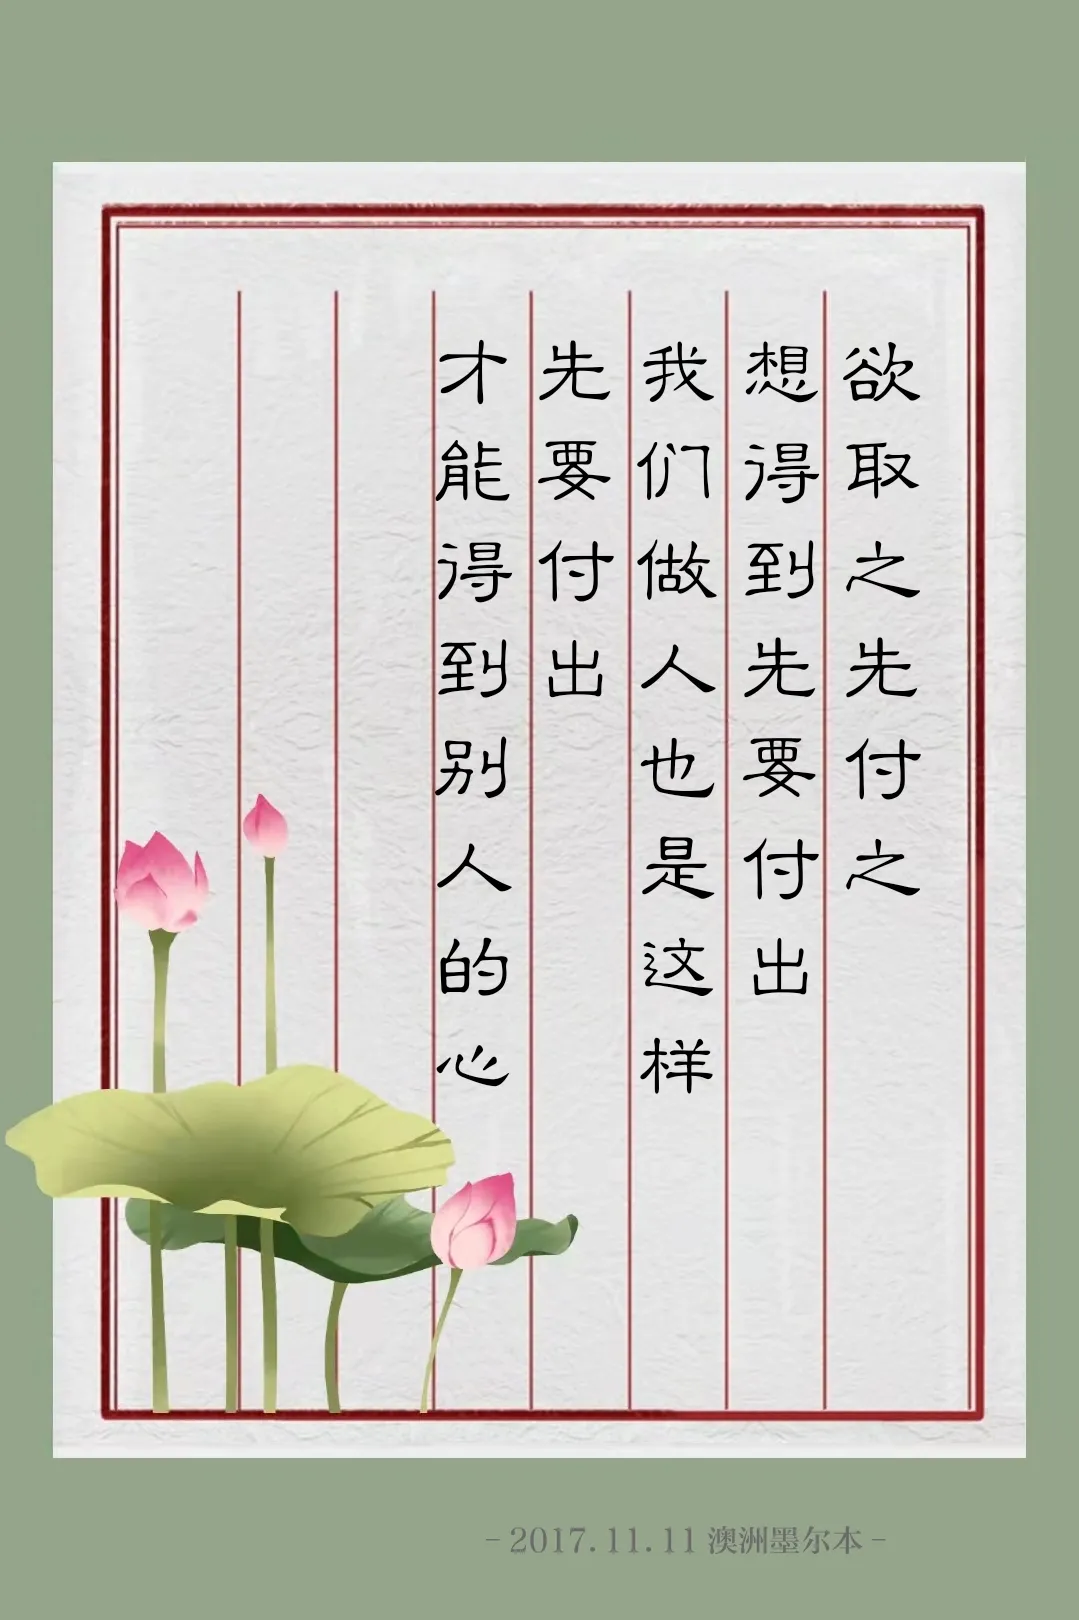 欲取之先付之
想得到先要付出
我们做人也是这样
先要付出
才能得到别人的心
-2017.11.11 澳洲墨尔本-